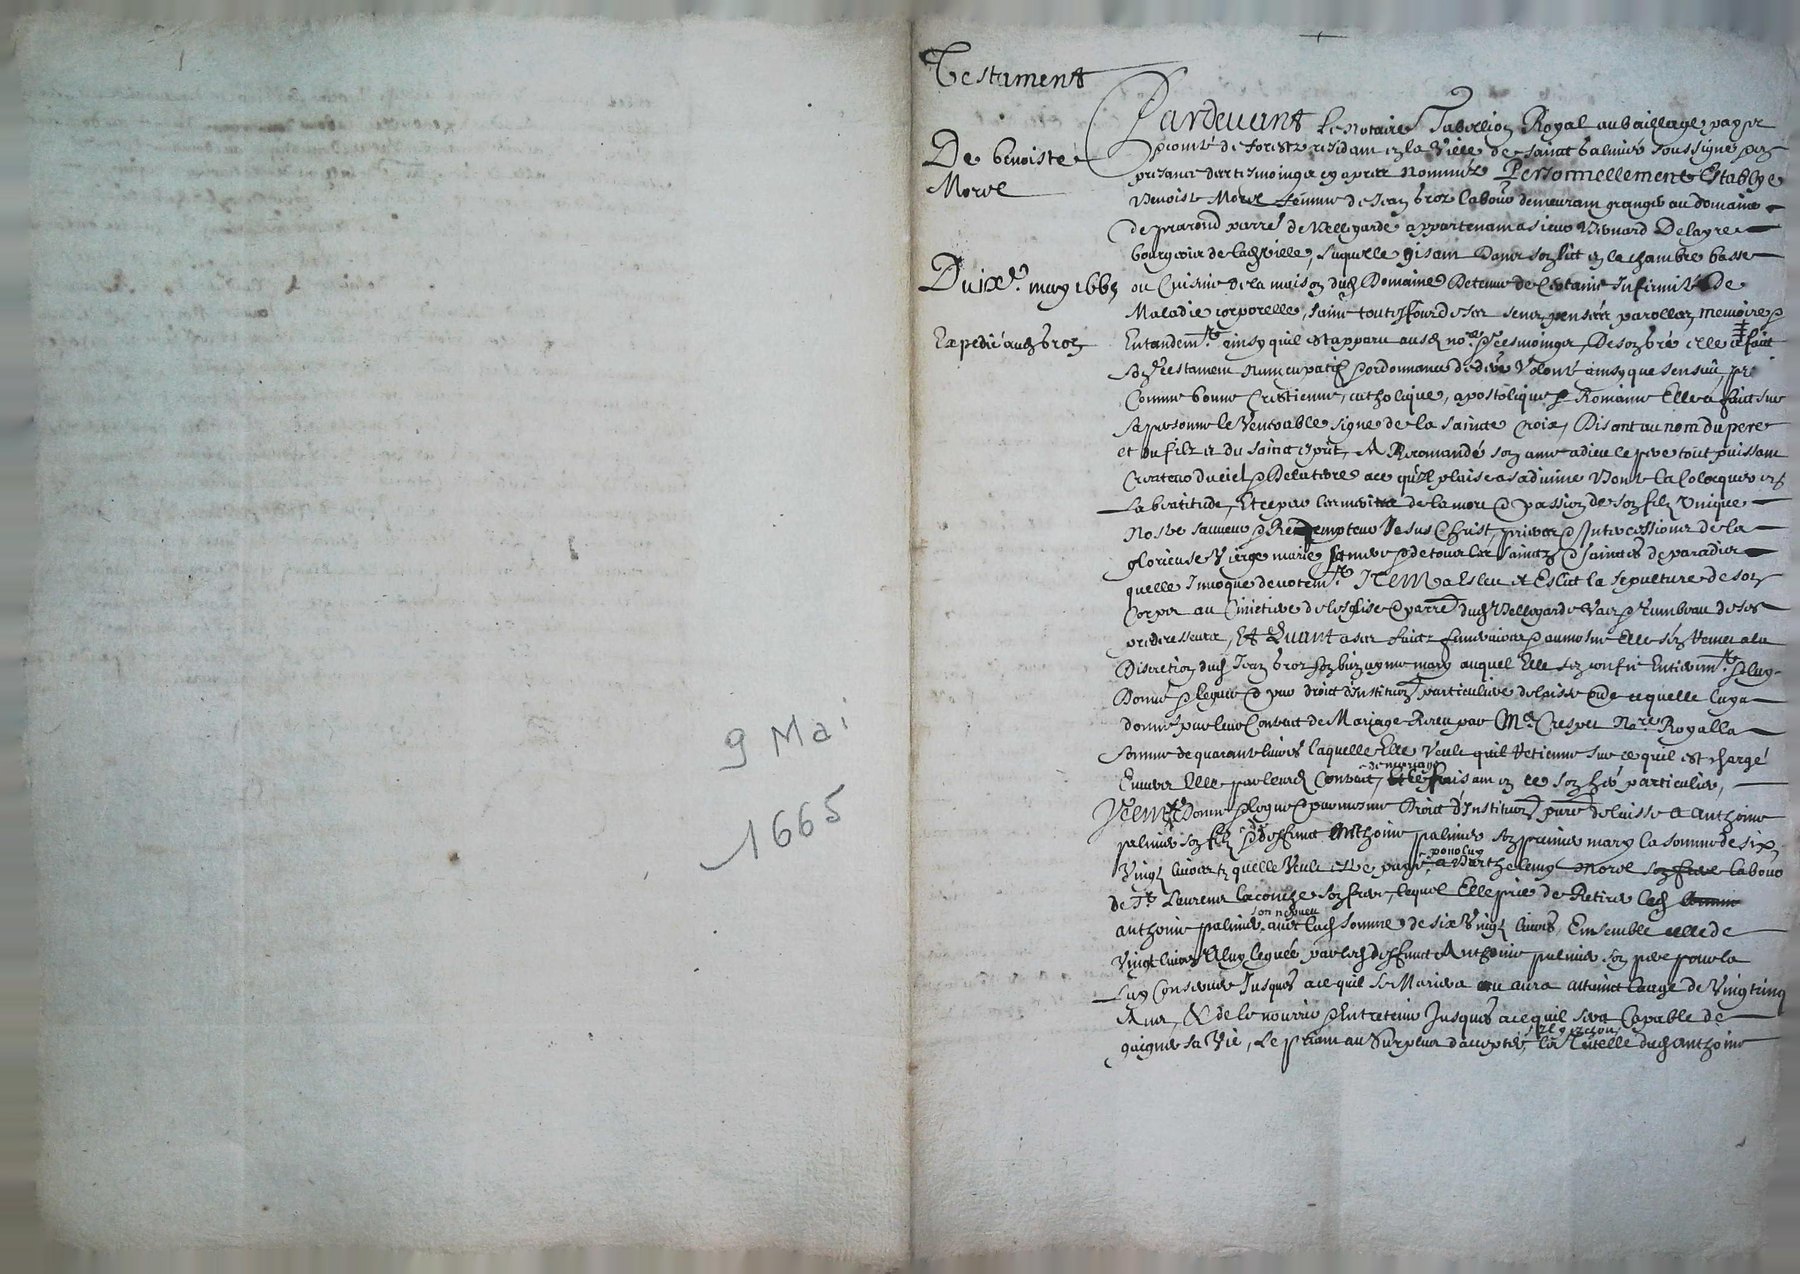 9 Mai
1665
Testament
De benoiste
Morel
Du ixe. may 1665
Expedié aud broz
Pardevant Le notaire Tabellion Royal au bailliage pays
et comté de forestz residant en la Ville de sainct balmier soussigné en
presance des tesmoingz cy apres nommés Personnellement Establye
benoiste Morel femme de Jean broz labour demeurant granger au domaine
de parrē de bellegarde appartenant a sieur benard Delayre
bourgeois de lad Ville, laquelle gisant dans son lict en la chambre basse
ou Cuisine de la maison dud Domaine Detenue de Certaine Infirmité De
Maladie corporelle, saine toutesfour de ses sens pensées parolles memoire &
Entendemt. ainsy quil est apparu ausd nore. & tesmoingz, De son gré elle a faict
son testament nuncupatif & ordonnance de de Volonté ainsy que sensuit,
Comme bonne Crestienne, catholique, apostolique & Romaine Elle a faict sur
sa personne le Venerable signe de la saincte Croix, Disant au nom du pere
et du filz et du sainct esprit, A Recomandé son ame a dieu le pere tout puissant
Createur du ciel & De la terre a ce qu'il plaise a sa divine bonté la colocquer en
La beatitude, Et ce par les merites de la mort & passion de son filz Unique
Nostre sauveur & Redempteur Jesus Christ, prieres & Intercessions de la
glorieuse Vierge marie sa mere & de tous les sainctz & sainctes de paradis
quelle Invoque devotemt. Item a Esleu et Eslit la sepulture de son
Corps au Cimetiere de lesglise & parrē dud bellegarde Vas & tumbeau de ses
predecesseurs, Et Quant a ses faictz funeraires & aumosne Elle sen remet a la
Discretion dud Jean broz son bien ayme mary auquel Elle sen confie Entieremt. & luy
Donne & legue & par droict d'Institution particuliere delaisse outre ce quelle luy a
donné par leur Contract de Mariage Receu par Me. Crespet Nore Royal la
somme de quarante livres laquelle Elle Veult quil Retienne sur ce quil est chargé
Envers Elle par leurd Contract, de mariage Et le faisant en ce son her particulier,
Item Donne & legue & par mesme Droict d'Institution parre delaisse a Anthoine
palmier son filz & de deffunct Anthoine palmier son premier mary la somme de six
Vingtz livres quelle Veult estre payé a Barthelemy Morel son frere labour
de St Laurens laconche son frere, lequel Elle prie de Retirer led
anthoine palmier son nepveu avec lad somme de six Vingtz livres, Ensemble celle de
Vingt livres A luy leguée par led deffunct Anthoine palmier son pere pour la
Luy Conserver Jusques a ce quil se Mariera ou aura attaint laage de Vingt cinq
Ans, & de le nourrir & Entretenir Jusques a ce quil sera Capable de
gaigner sa Vie, Le priant au Surplus d'accepter la Tutelle dud anthoine